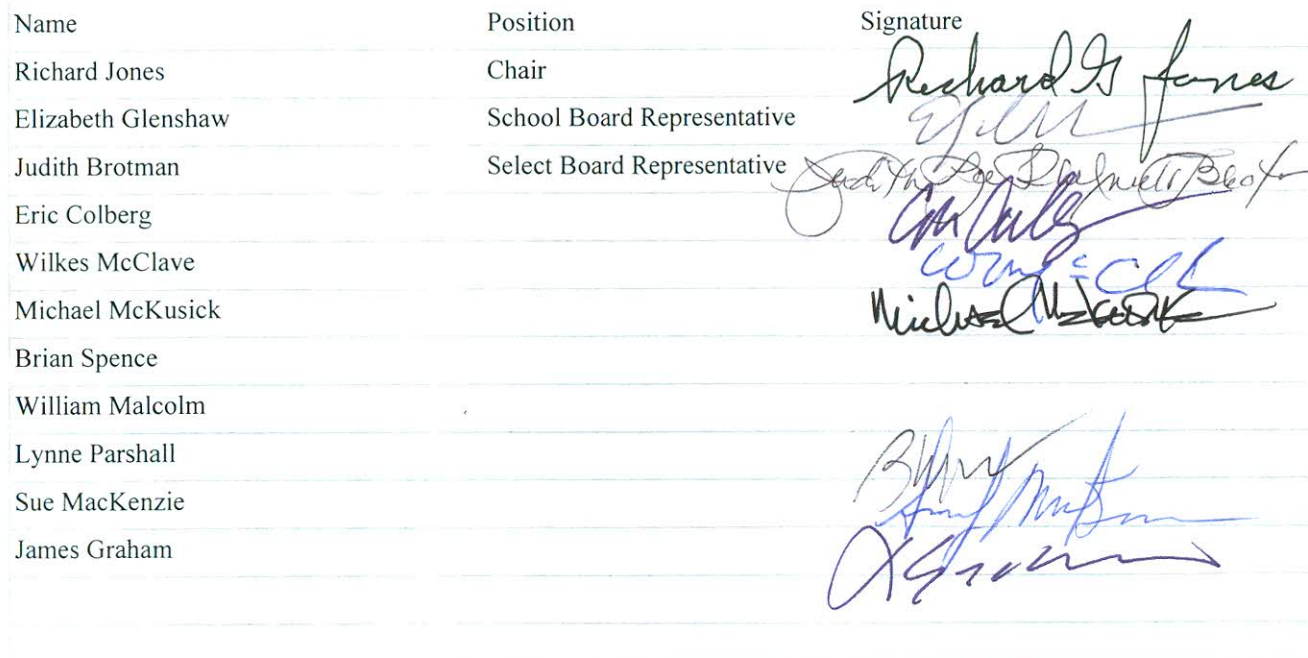 Name Position Signature
Richard Jones Chair Richard G Jones
Elizabeth Glenshaw School Board Representative
Judith Brotman Select Board Representative Judith
Eric Colberg
Wilkes McClave
Michael McKusick Michael McKusick
Brian Spence
William Malcolm
Lynne Parshall
Sue MacKenzie
James Graham